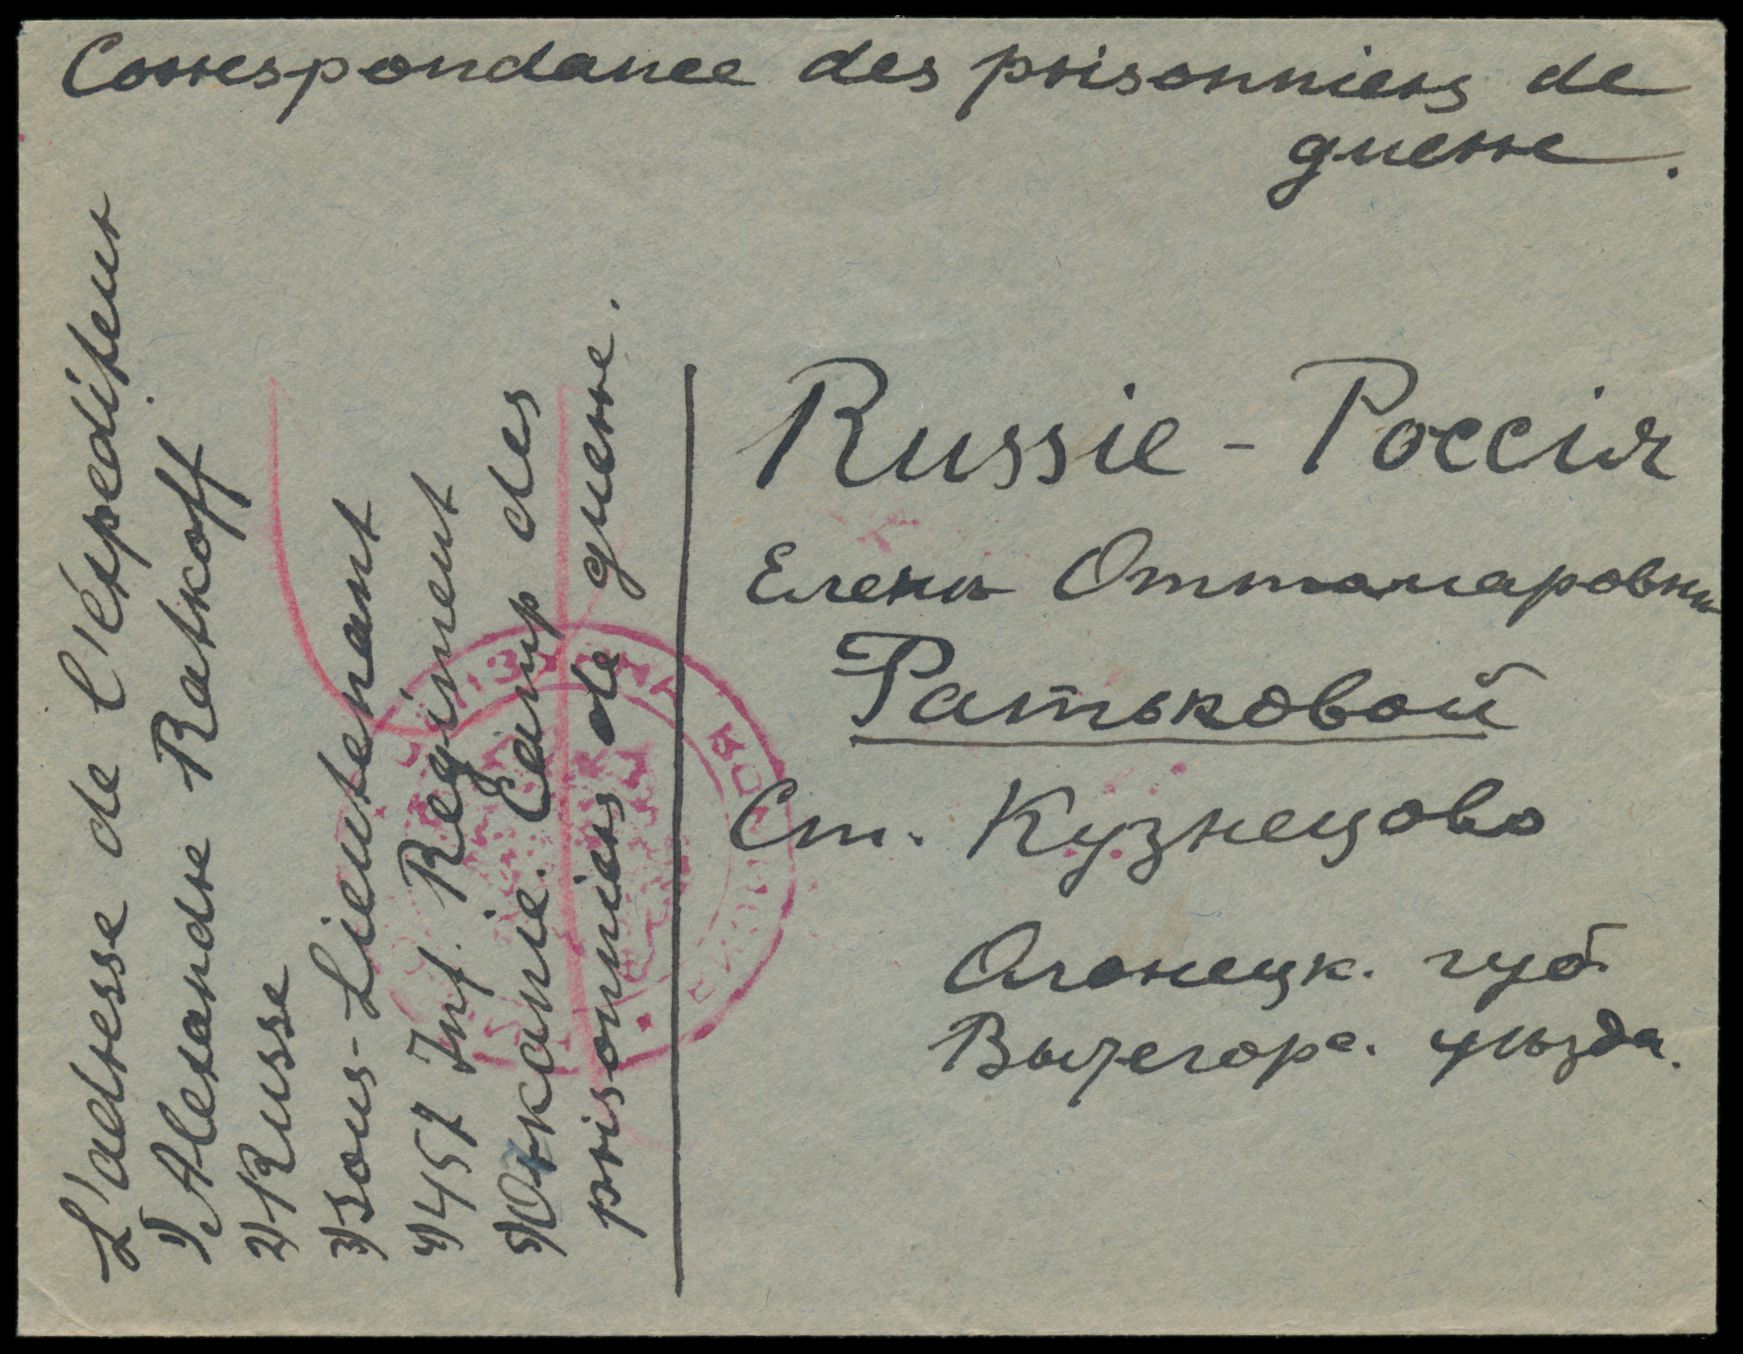 Correspondance des prisonniers de
guerre.
L'adresse de l'éxpediteur
1) Alexandre Ratkoff
2) Russe
3) Sous-Lieutenant
4) 457 Inf. Regiment
5) Orkanie. Camp des
prisonniers de guerre.
Russie - Россія
Елены Оттомаровны
Ратьковой
Ст. Кузнецово
Олонецк. губ.
Вытегорс. уѣзда.